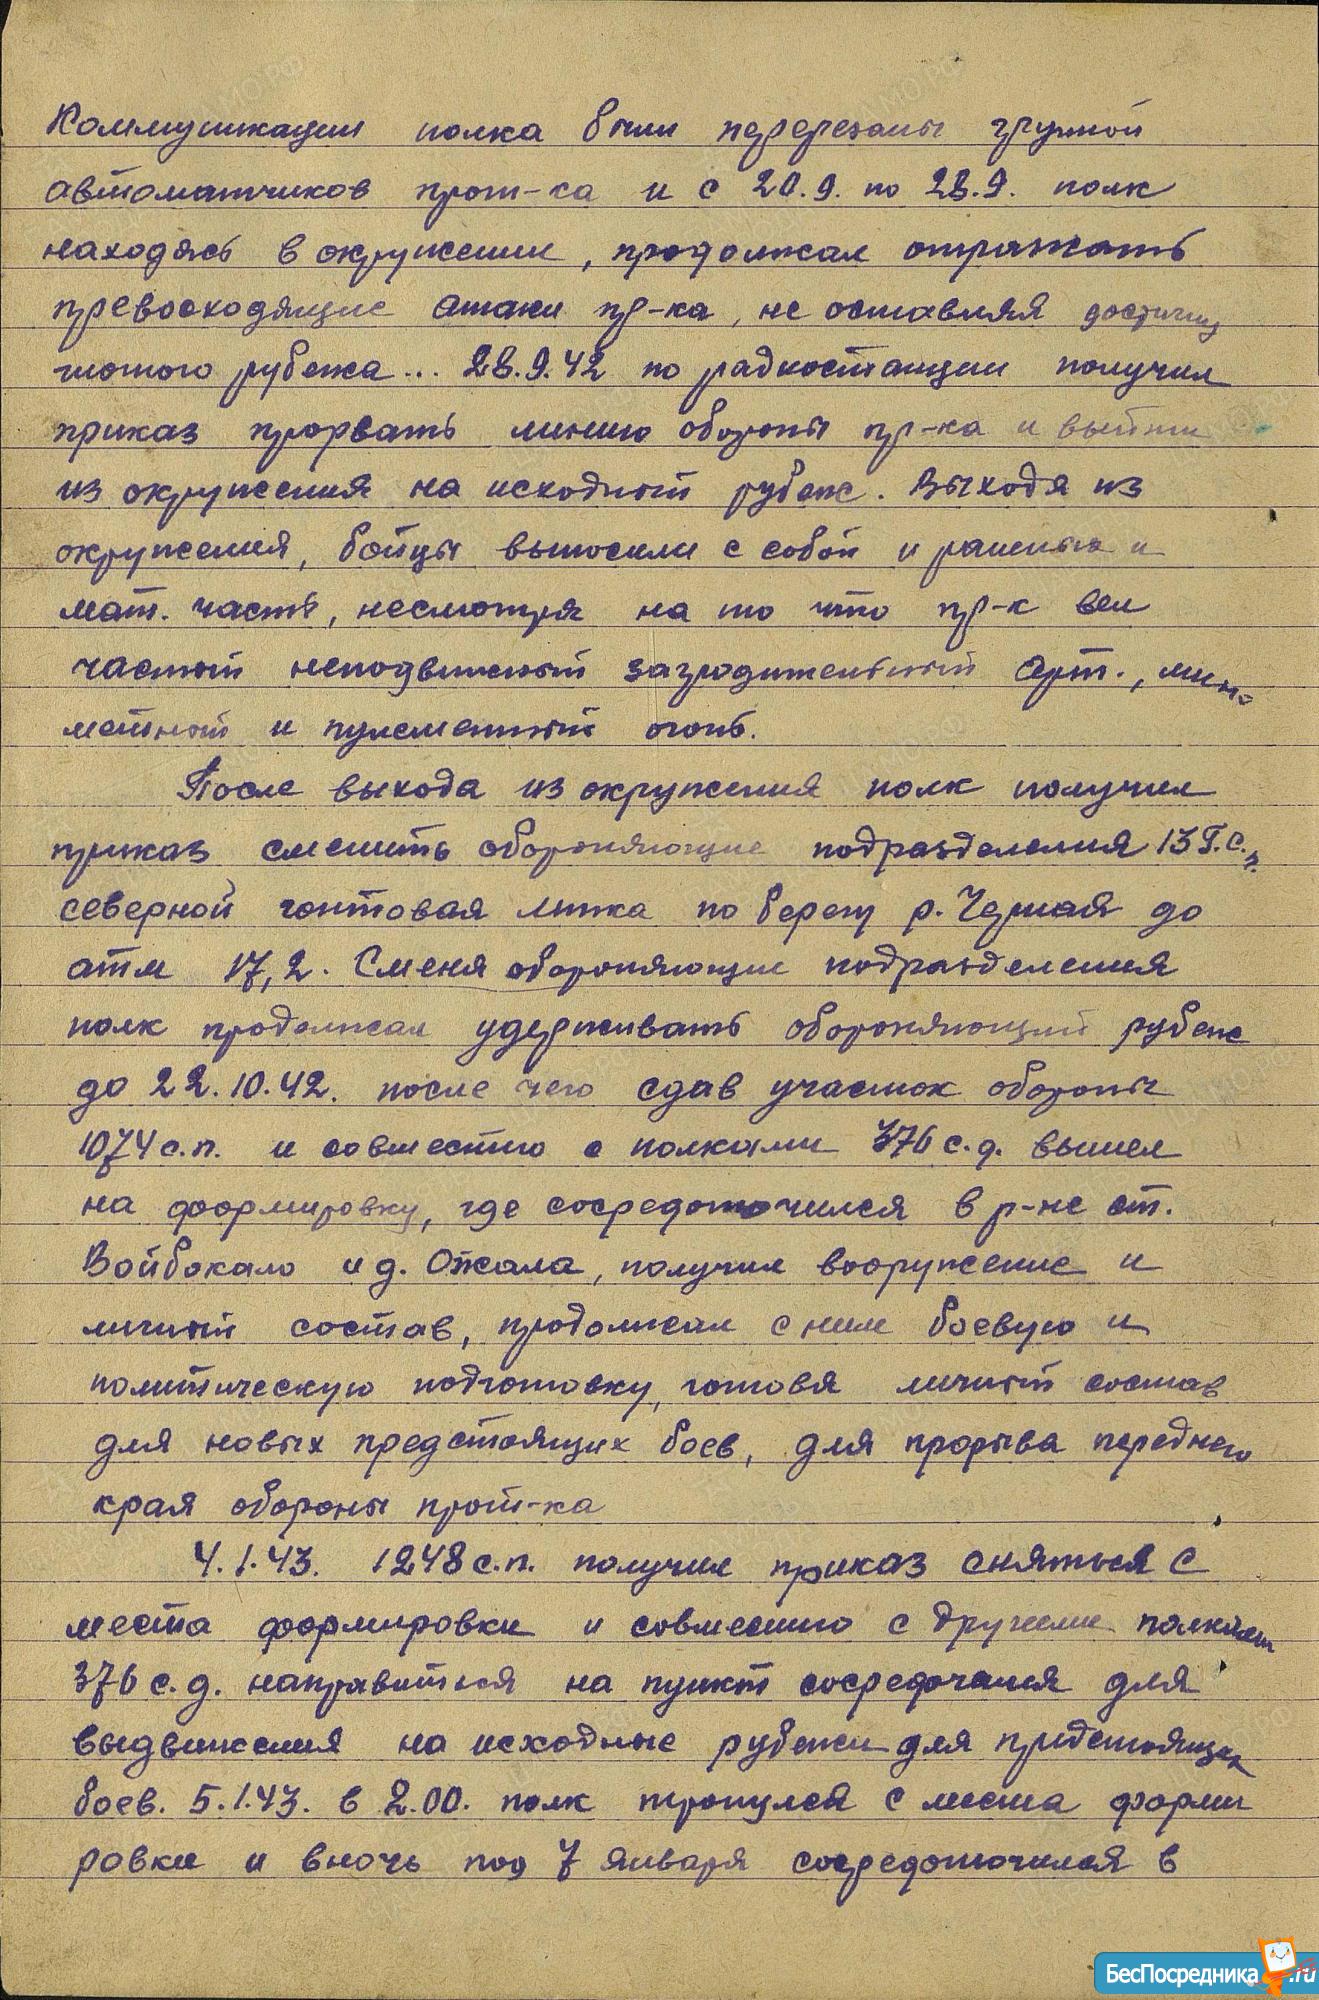 Коммуникации полка были перерезаны группой
автоматчиков прот-ка и с 20.9. по 28.9. полк
находясь в окружении, продолжал отражать
превосходящие атаки пр-ка, не оставляя достиг
нутого рубежа... 28.9.42 по радиостанции получил
приказ прорвать линию обороны пр-ка и выйти
из окружения на исходный рубеж. Выходя из
окружения, бойцы выносили с собой и раненых и
мат. часть, несмотря на то что пр-к вел
частый неподвижный заградительный арт., мин-
метный и пулеметный огонь.
После выхода из окружения полк получил
приказ сменить обороняющие подразделения 13 Г.с.
северной гонтовая липка по берегу р. Черная до
отм 17,2. Сменя обороняющие подразделения
полк продолжал удерживать обороняющий рубеж
до 22.10.42. после чего сдав участок обороны
1074 с.п. и совместно с полками 376 с.д. вышел
на формировку, где сосредоточился в р-не ст.
Войбокало и д. Ожала, получил вооружение и
личный состав, продолжал с ним боевую и
политическую подготовку, готовя личный состав
для новых предстоящих боев, для прорыва переднего
края обороны прот-ка
4.1.43. 1248 с.п. получил приказ сняться с
места формировки и совместно с другими полками
376 с.д. направиться на пункт сосредочения для
выдвижения на исходные рубежи для предстоящих
боев. 5.1.43. в 2.00. полк тронулся с места форми
ровки и вночь под 7 января сосредоточился в
БесПосредника.ru